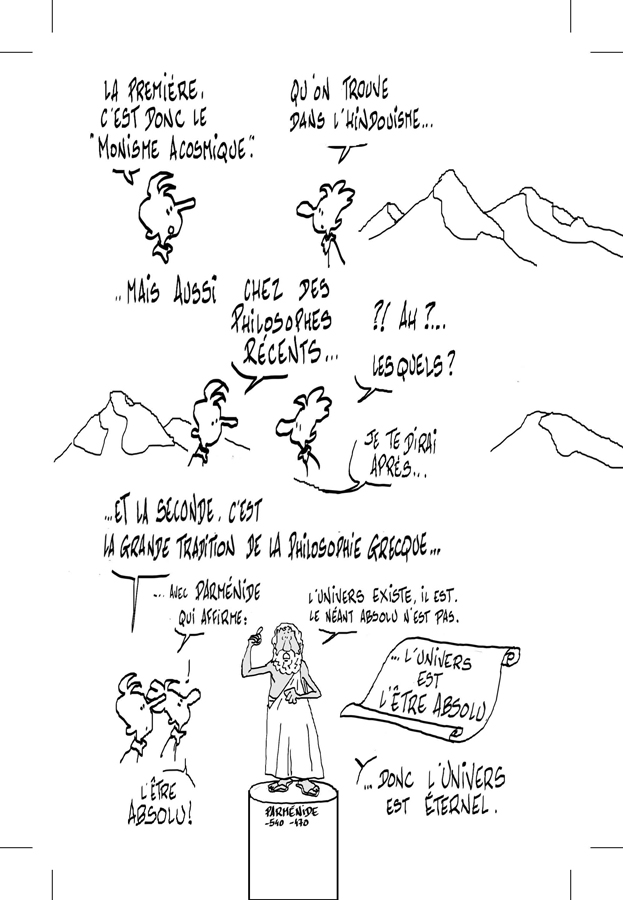 LA PREMIÉRE,
C'EST DONC LE
"MONISME ACOSMIQUE".
QU'ON TROUVE
DANS L'HINDOUISME...
..MAIS AUSSI CHEZ DES
PHILOSOPHES
RÉCENTS...
?! AH ?...
LESQUELS ?
JE TE DIRAI
APRÉS...
...ET LA SECONDE, C'EST
LA GRANDE TRADITION DE LA PHILOSOPHIE GRECQUE...
... AVEC PARMÉNIDE
QUI AFFIRME:
L'UNIVERS EXISTE, IL EST.
LE NÉANT ABSOLU N'EST PAS.
... L'UNIVERS
EST
L'ÊTRE ABSOLU
L'ÊTRE
ABSOLU !
... DONC L'UNIVERS
EST ÉTERNEL.
PARMÉNIDE
-540 -470